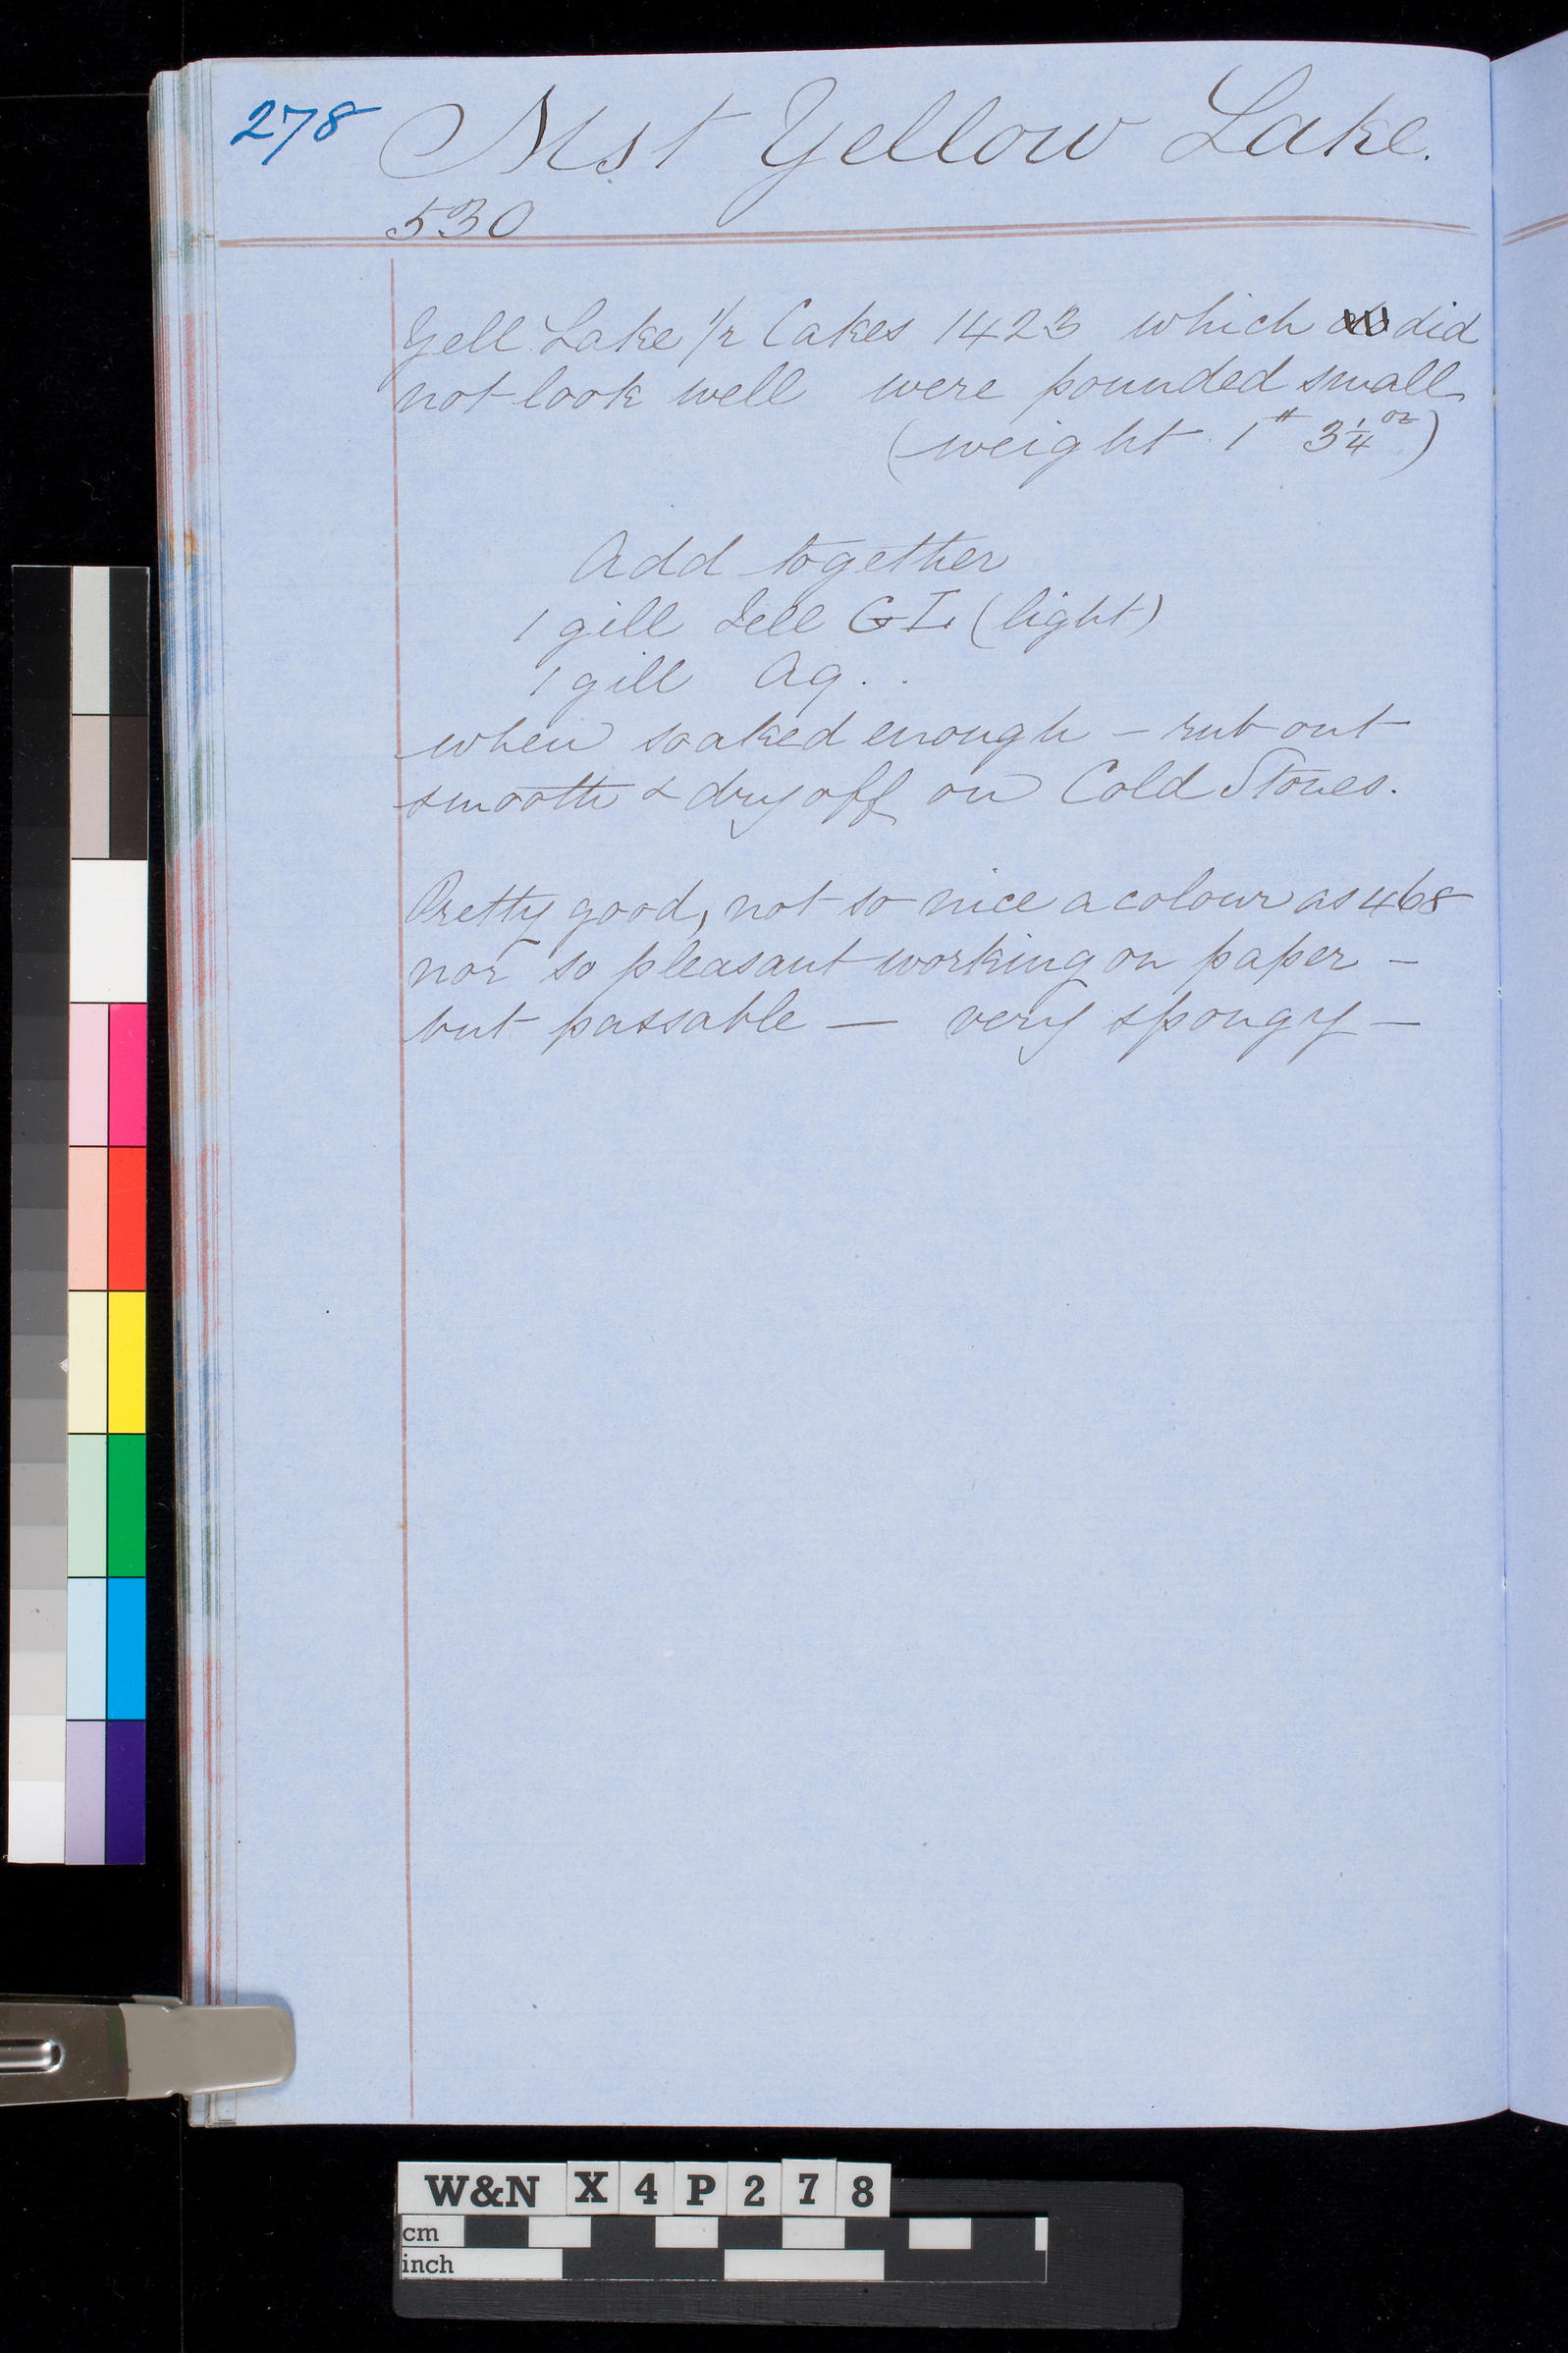 278 Mst Yellow Lake.
530
Yell. Lake 1/2 Cakes 1423 which did
not look well were pounded small
(weight 1# 3 1/4 oz)
Add together
1 gill Jell G I. (light)
1 gill Aq. .
when soaked enough – rub out
smooth & dry off on Cold Stones.
Pretty good, not so nice a colour as 468
nor so pleasant working on paper –
but passable — very spongy —
W&N X 4 P 2 7 8
cm
inch